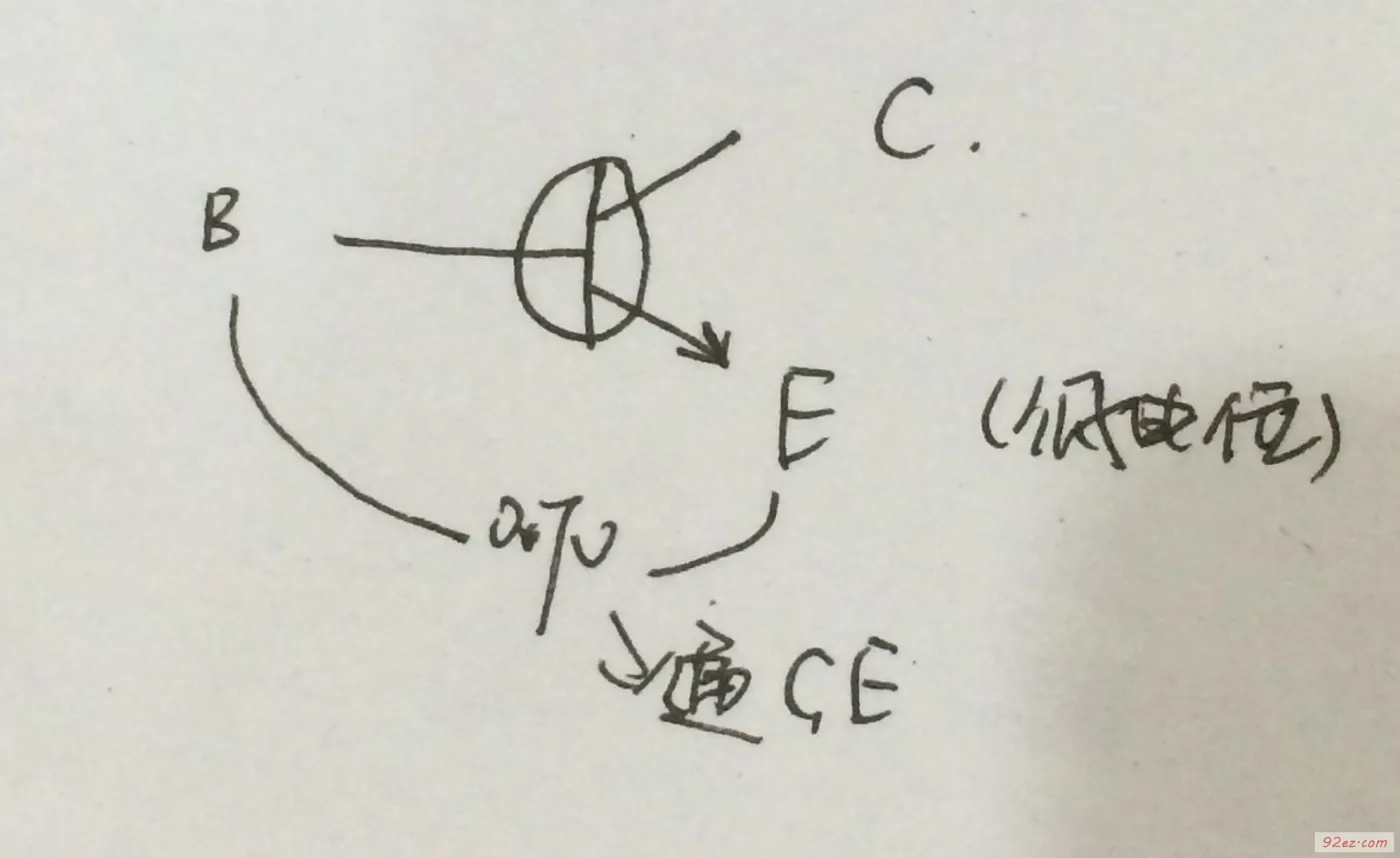 C.
B
E (低电位)
0.7V
通CE
92ez.com